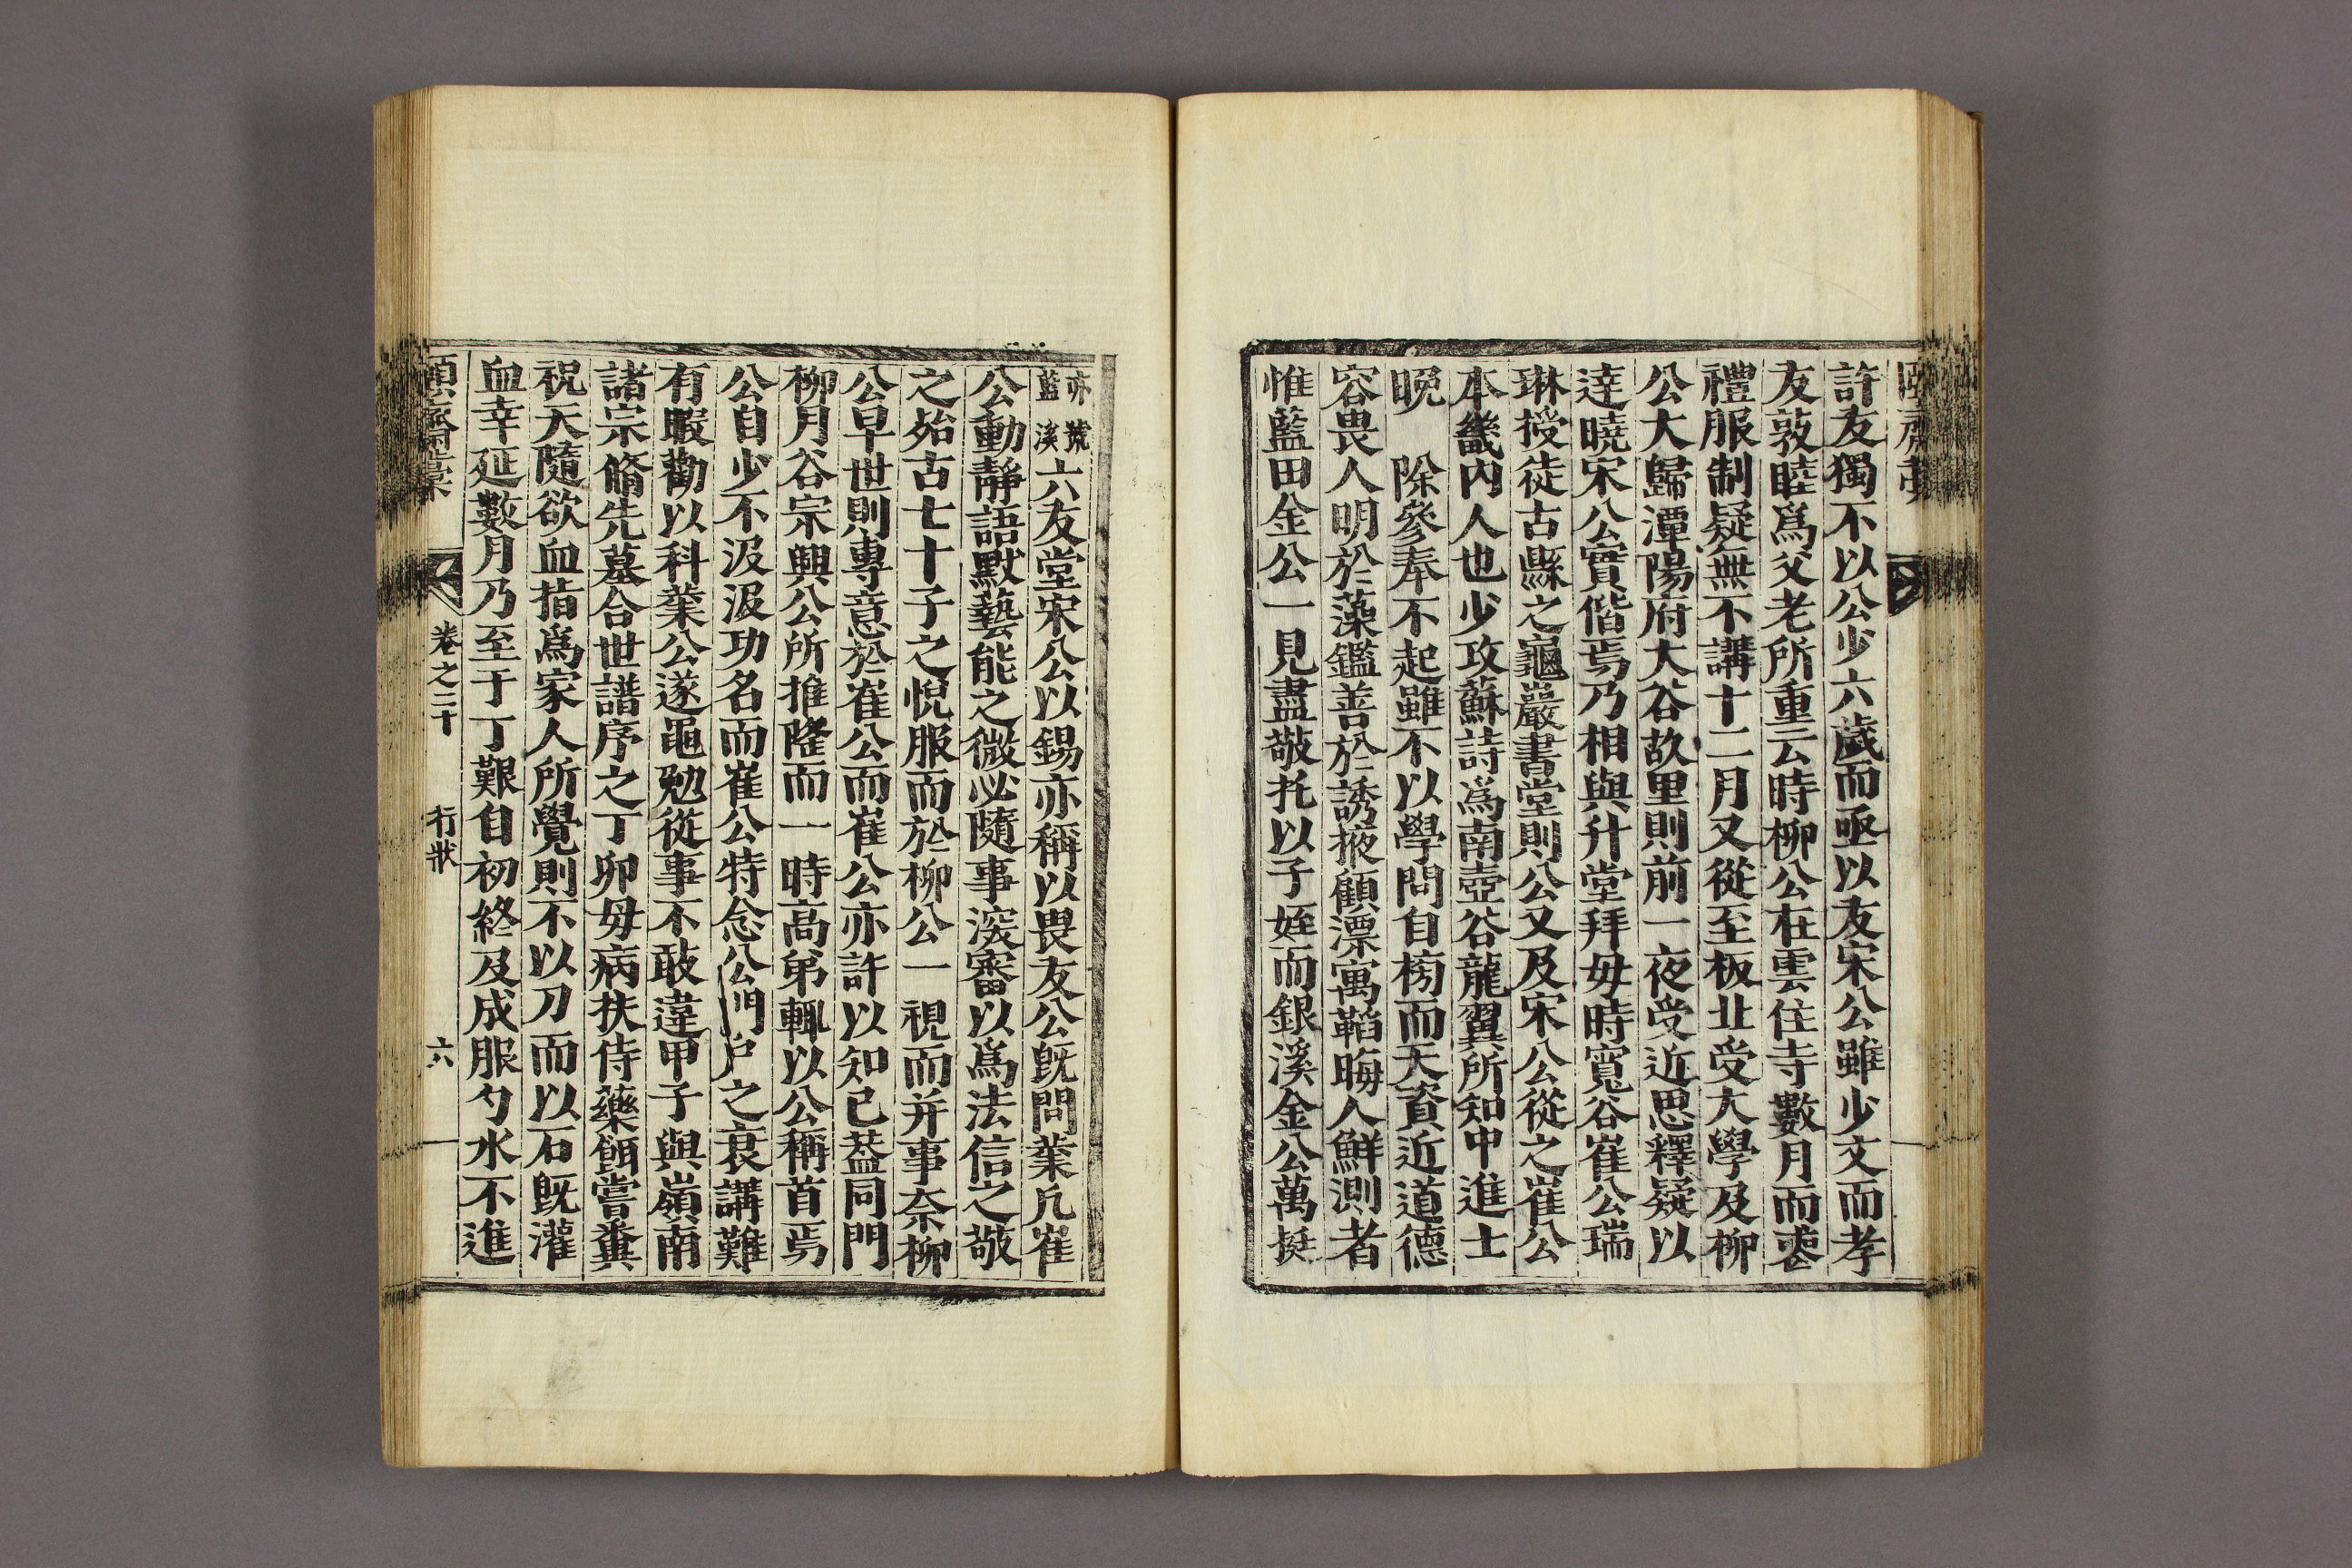 許友獨不以公少六歲而亟以友宋公雖少文而孝
友敦睦爲父老所重云時柳公在雲住寺數月而裘
禮服制疑無不講十二月又從至板北受大學及柳
公大歸潭陽府大谷故里則前一夜受近思釋疑以
達曉宋公實偕焉乃相與升堂拜母時寬谷崔公瑞
琳授徒古縣之龜巖書堂則公又及宋公從之崔公
本畿內人也少攻蘇詩爲南壺谷龍翼所知中進士
晩　除參奉不起雖不以學問自榜而天資近道德
容畏人明於藻鑑善於誘掖顧漂寓韜晦人鮮測者
惟藍田金公一見盡敬托以子姪而銀溪金公萬挺
亦號藍溪六友堂宋公以錫亦稱以畏友公旣問業凡崔
公動靜語默藝能之微必隨事深審以爲法信之敬
之殆古七十子之悅服而於柳公一視而并事奈柳
公早世則專意於崔公而崔公亦許以知已盖同門
柳月谷宗興公所推隆而一時高弟輒以公稱首焉
公自少不汲汲功名而崔公特念公門戶之衰講難
有暇勸以科業公遂黽勉從事不敢違甲子與嶺南
諸宗脩先墓合世譜序之丁卯母病扶侍藥餌嘗糞
祝天隨欲血指爲家人所覺則不以刀而以石旣灌
血幸延數月乃至于丁艱自初終及成服勺水不進
頤齋遺稾　卷之二十　行狀　六